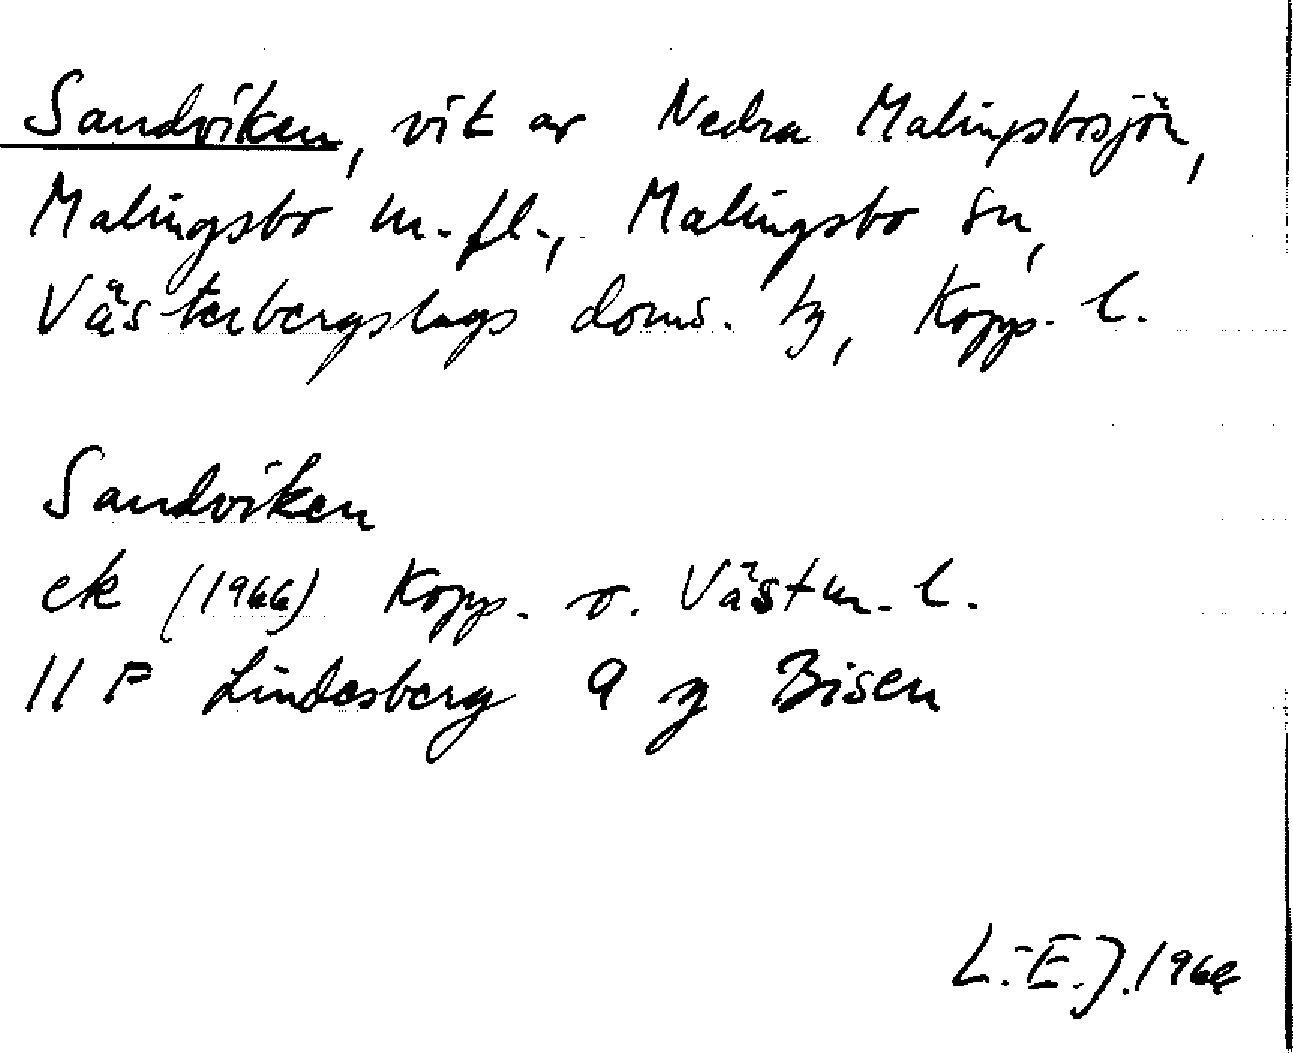 Sandviken, vik av Nedra Malingsbosjön,
Malingsbo m.fl., Malingsbo sn,
Västerbergslags doms. tg, Kopp. l.
Sandviken
ek (1966) Kopp. o. Västm. l.
11 F Lindesberg 9 g Bisen
L.-E.J. 1966